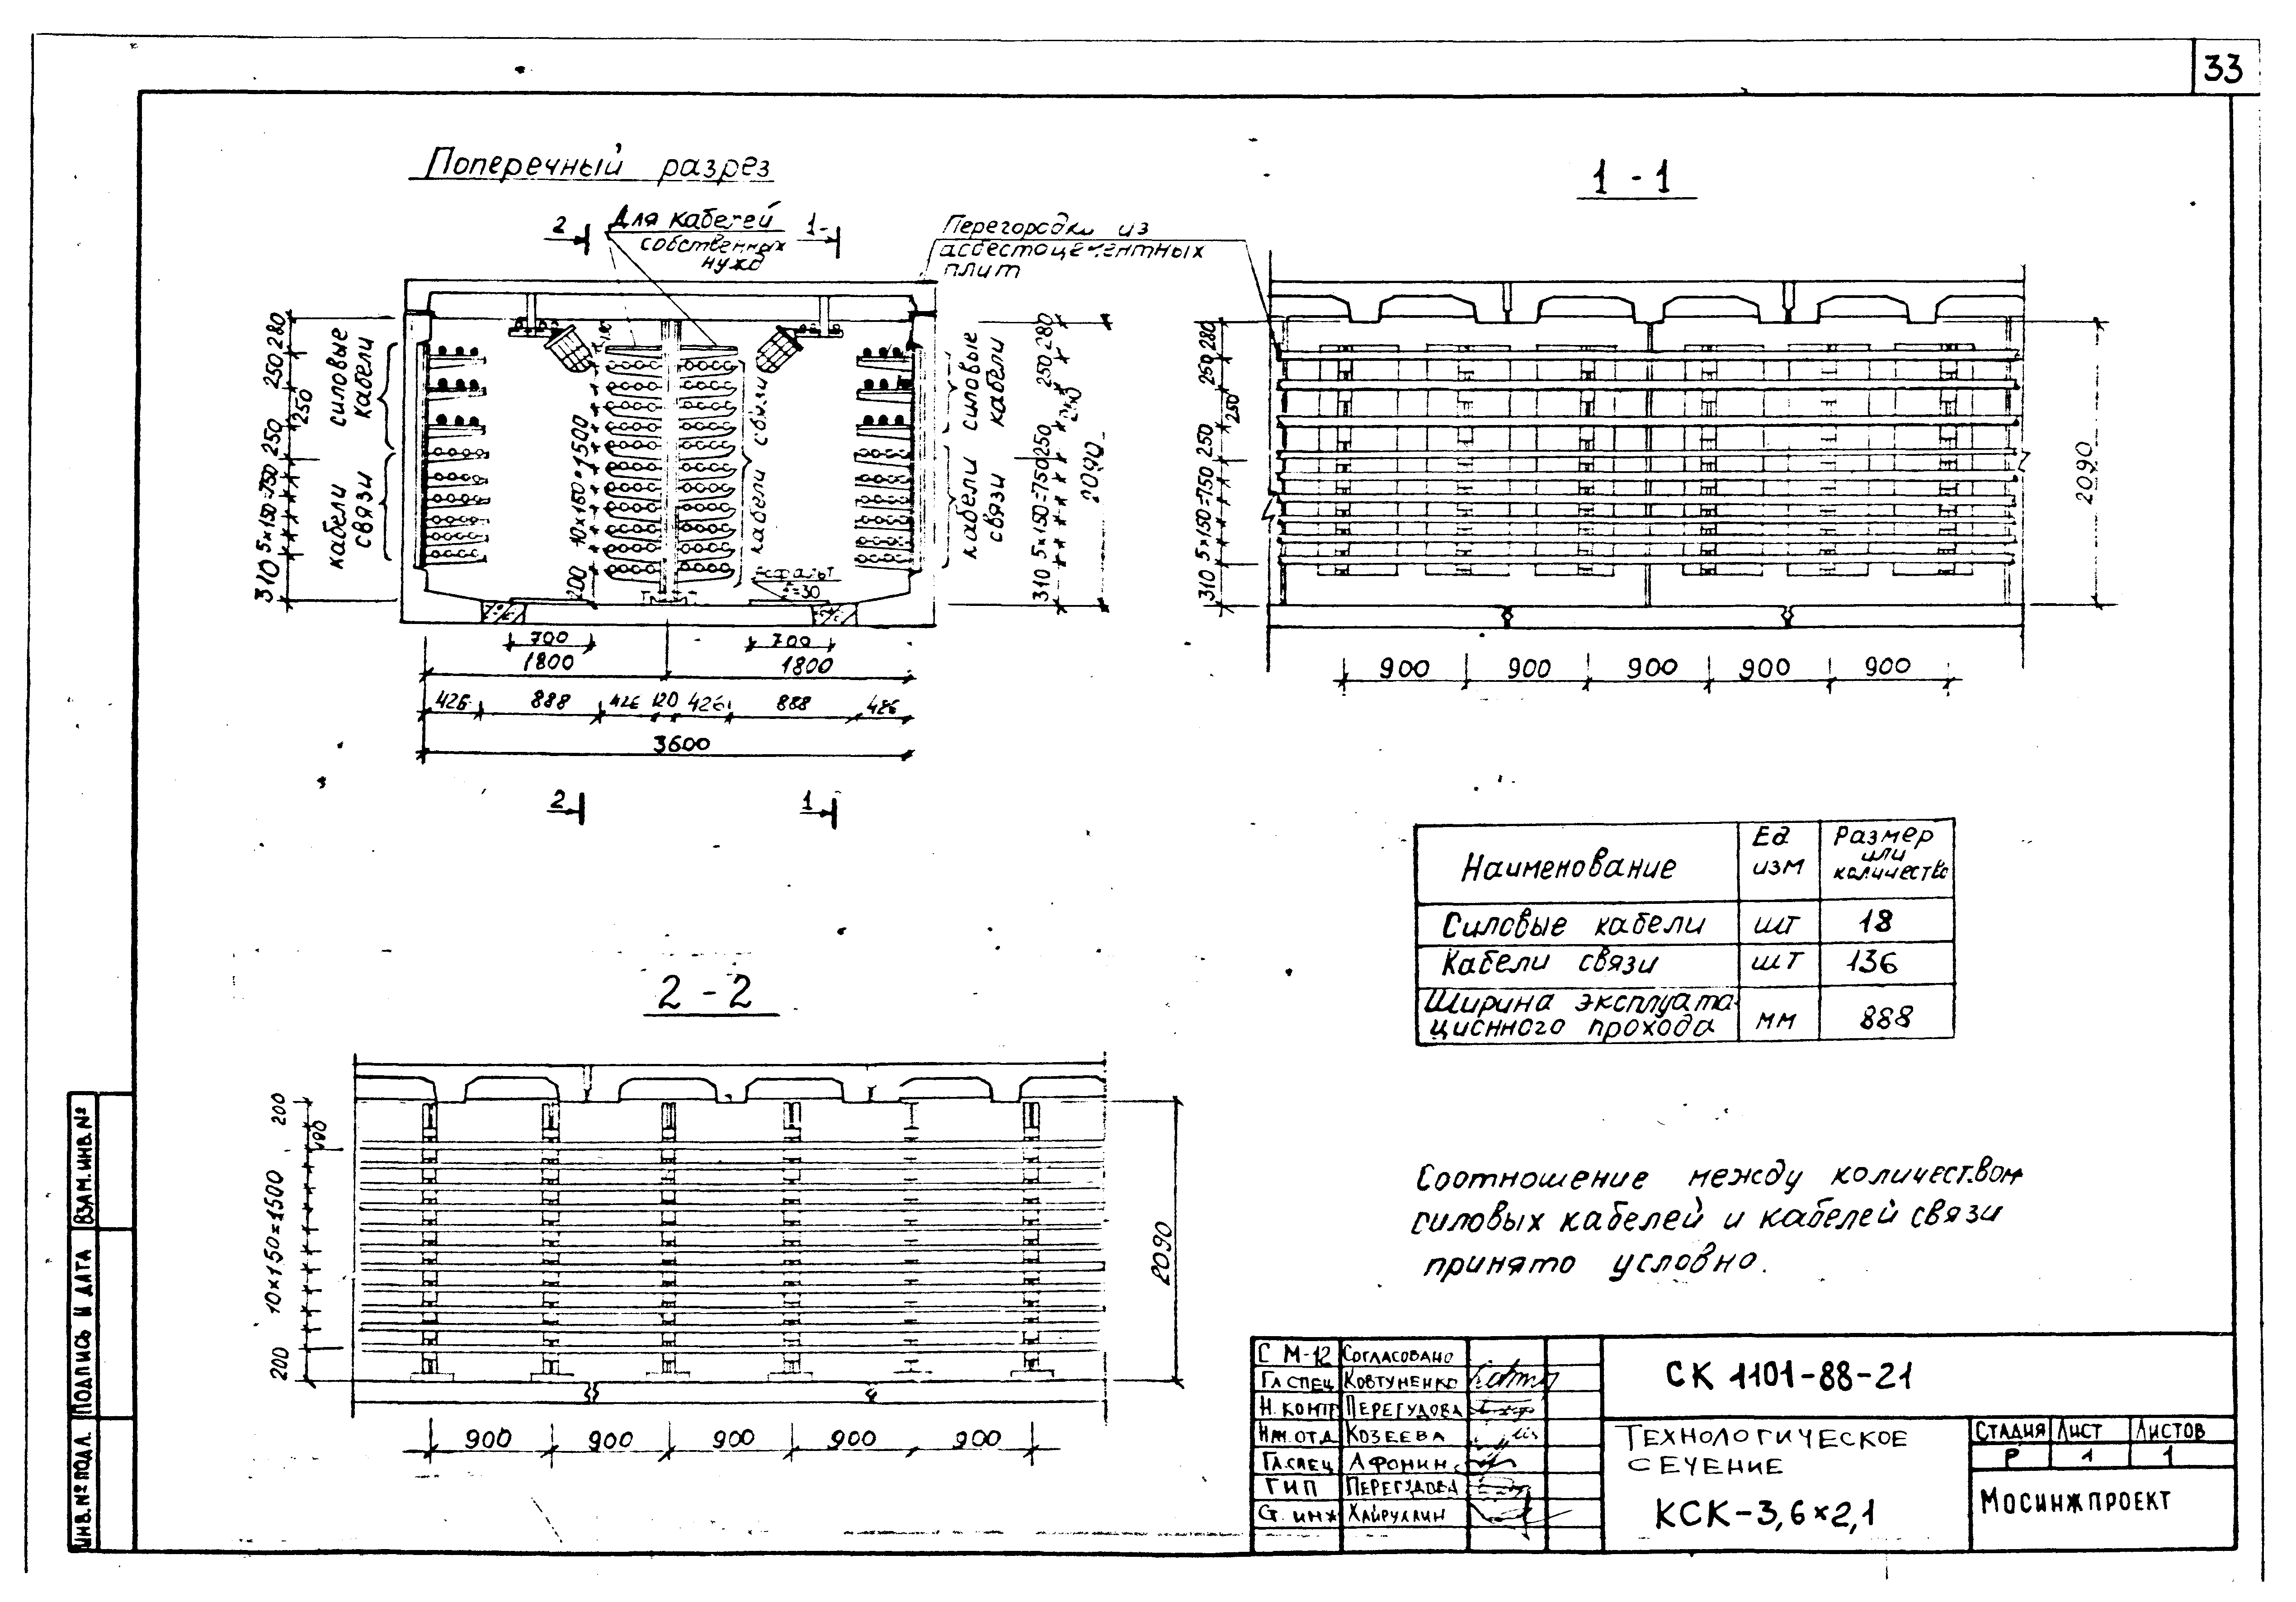 33
Поперечный разрез
1-1
2
Для кабелей
собственных
нужд
1
Перегородки из
асбестоцементных
плит
280
250
250
250
5×150=750
310
силовые
кабели
кабели
связи
10×150=1500
200
кабели связи
силовые
кабели
кабели
связи
280
250
250
5×150=750
310
2090
280
250
250
250
5×150=750
310
2090
700
700
1800
1800
426
888
426
120
426
888
426
3600
900
900
900
900
900
2
1
Наименование
Ед
изм
Размер
или
количество
Силовые кабели
шт
18
Кабели связи
шт
136
Ширина эксплуата-
ционного прохода
мм
888
2-2
200
190
10×150=1500
200
2090
900
900
900
900
900
Соотношение между количеством
силовых кабелей и кабелей связи
принято условно.
Взам.инв.№
Подпись и дата
Инв.№ подл.
СМ-12
Согласовано
Гл спец
Ковтуненко
Н. контр
Перегудова
Нач.отд
Козеева
Гл.спец
Афонин
ГИП
Перегудова
Ст. инж
Хайруллин
СК 1101-88-21
Технологическое
сечение
КСК-3,6×2,1
Стадия
Лист
Листов
Р
1
1
Мосинжпроект